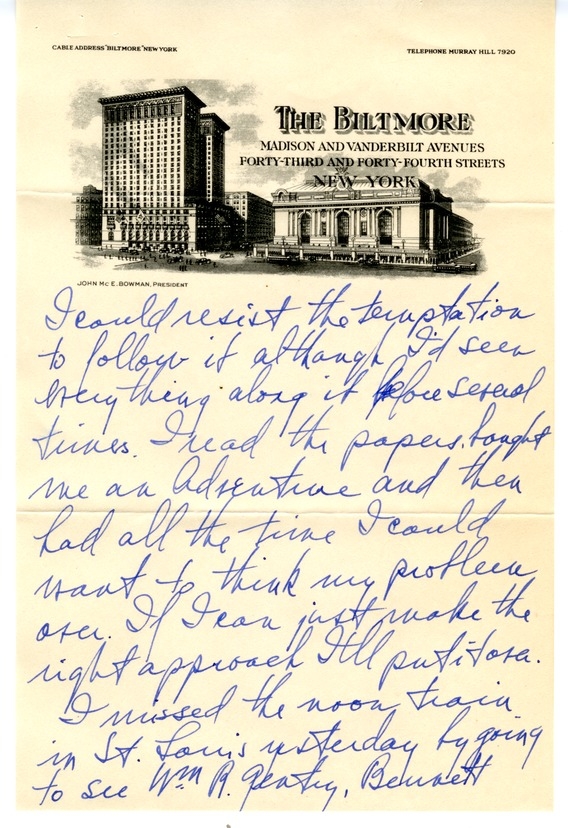 CABLE ADDRESS "BILTMORE" NEW YORK
TELEPHONE MURRAY HILL 7920
THE BILTMORE
MADISON AND VANDERBILT AVENUES
FORTY-THIRD AND FORTY-FOURTH STREETS
NEW YORK
JOHN McE. BOWMAN, PRESIDENT
I could resist the temptation
to follow it although I'd seen
everything along it before several
times. I read the papers, bought
me an Adventure and then
had all the time I could
want to think my problem
over. If I can just make the
right approach I'll put it over.
I missed the noon train
in St. Louis yesterday by going
to see Wm R. Gentry, Bennett